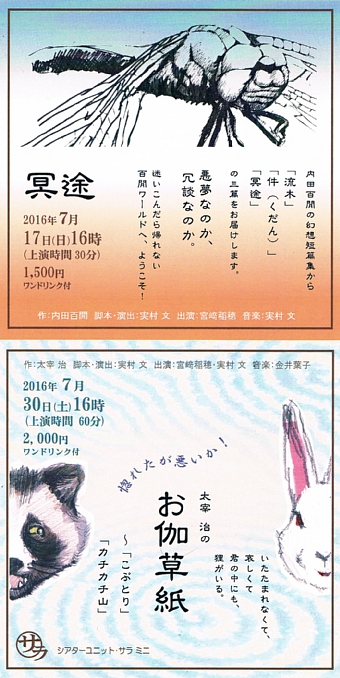 内田百閒の幻想短篇集から
「流木」
「件（くだん）」
「冥途」
の三篇をお届けします。
悪夢なのか、
冗談なのか。
迷いこんだら帰れない
百閒ワールドへ、ようこそ！
冥途
2016年7月
17日(日)16時
(上演時間30分)
1,500円
ワンドリンク付
作：内田百閒 脚本・演出：実村 文 出演：宮﨑稲穂 音楽：実村 文
作：太宰 治 脚本・演出：実村 文 出演：宮﨑稲穂・実村 文 音楽：金井葉子
2016年7月
30日(土)16時
(上演時間 60分)
2,000円
ワンドリンク付
惚れたが悪いか！
太宰 治の
お伽草紙
～「こぶとり」
「カチカチ山」
いたたまれなくて、
哀しくて
君の中にも、
狸がいる。
サラ
シアターユニット・サラ ミニ